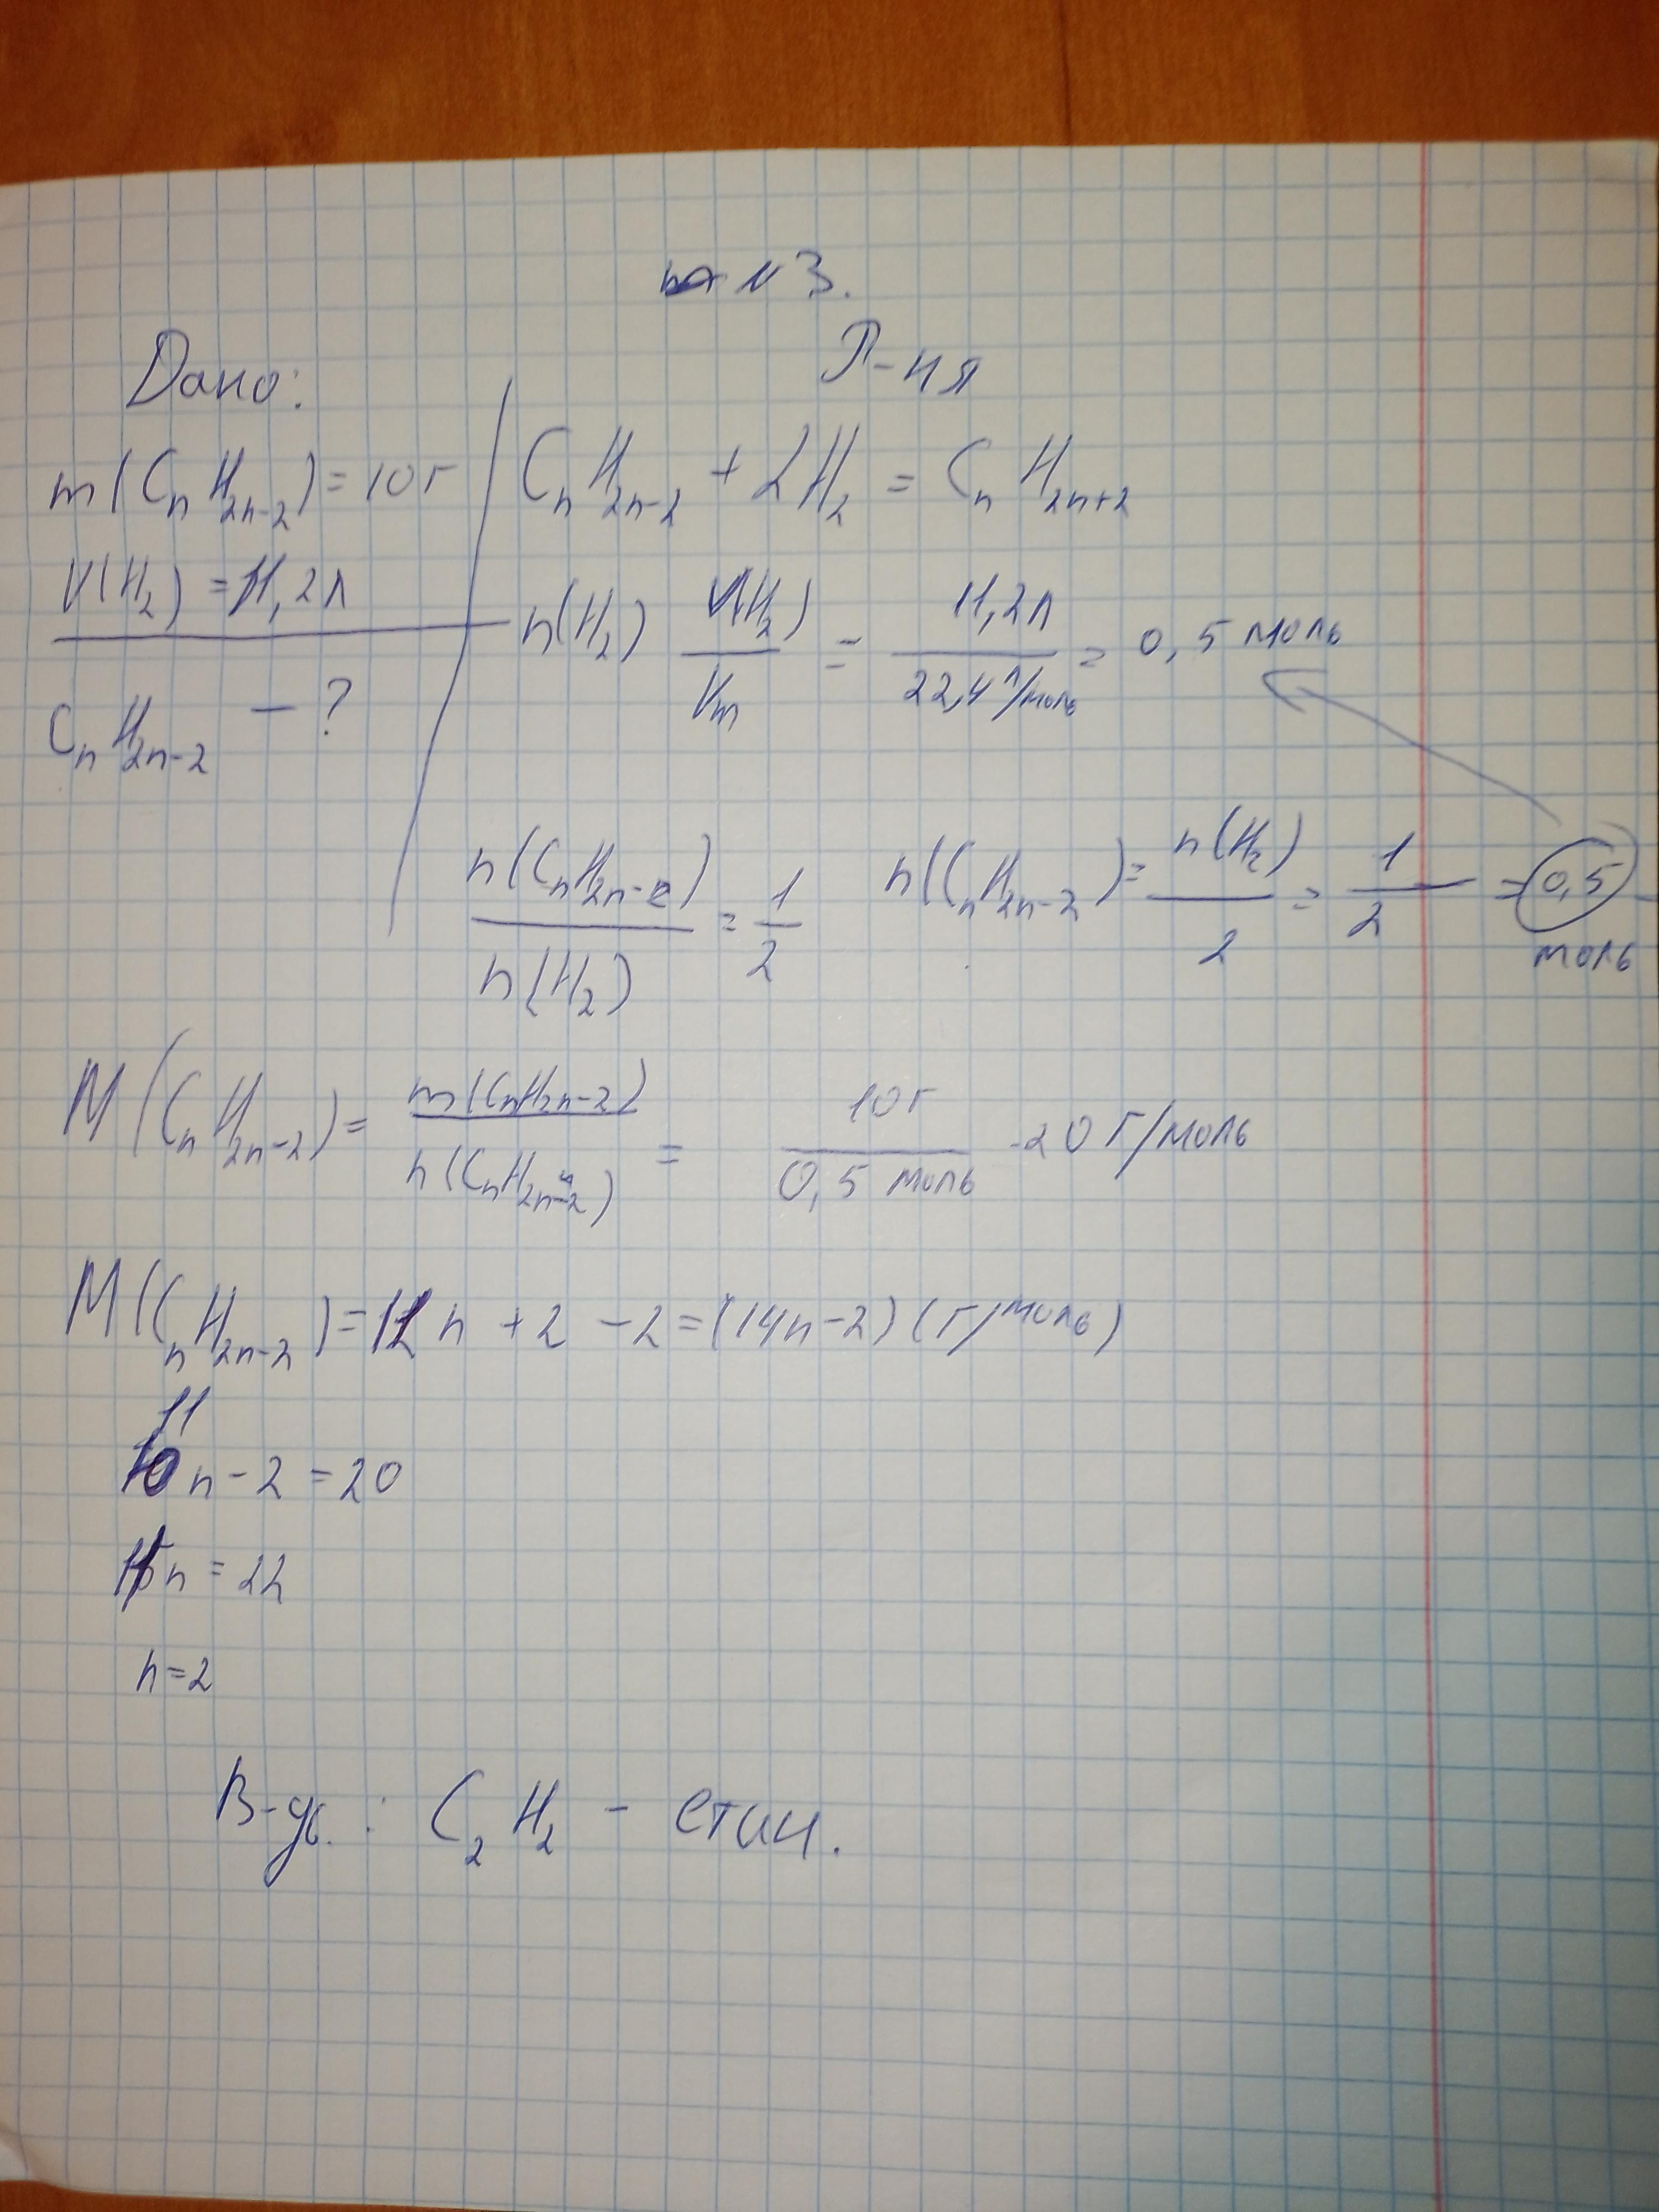 №3.
Дано:
Р-ня
m(CnH2n-2) = 10г
CnH2n-2 + 2H2 = CnH2n+2
V(H2) = 11,2л
n(H2) V(H2)/Vm = 11,2л/22,4 л/моль = 0,5 моль
CnH2n-2 - ?
n(CnH2n-2)/n(H2) = 1/2 n(CnH2n-2) = n(H2)/2 = 1/2 = 0,5 моль
M(CnH2n-2) = m(CnH2n-2)/n(CnH2n-2) = 10г/0,5 моль - 20 г/моль
M(CnH2n-2) = 12n + 2 - 2 = (14n-2) (г/моль)
11n - 2 = 20
11n = 22
n=2
В-дь: C2H2 - етин.